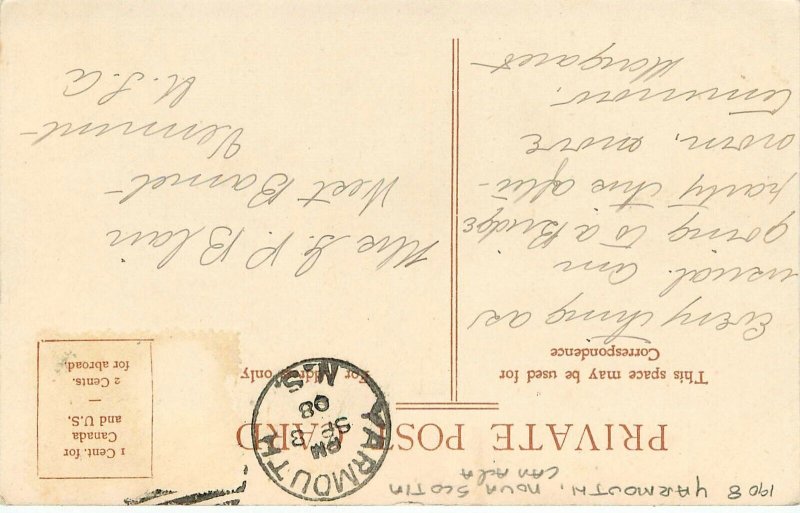 1908 YARMOUTH, NOVA SCOTIA
CANADA
PRIVATE POST CARD
This space may be used for
Correspondence
For address only
1 Cent. for
Canada
and U.S.
—
2 Cents.
for abroad.
YARMOUTH
PM
SE 3
08
N.S.
Every thing as
usual. am
going to a Bridge
party this after-
noon, more
tomorrow.
Margaret
Mrs P Blair
West Barnet-
Vermont-
U.S.A